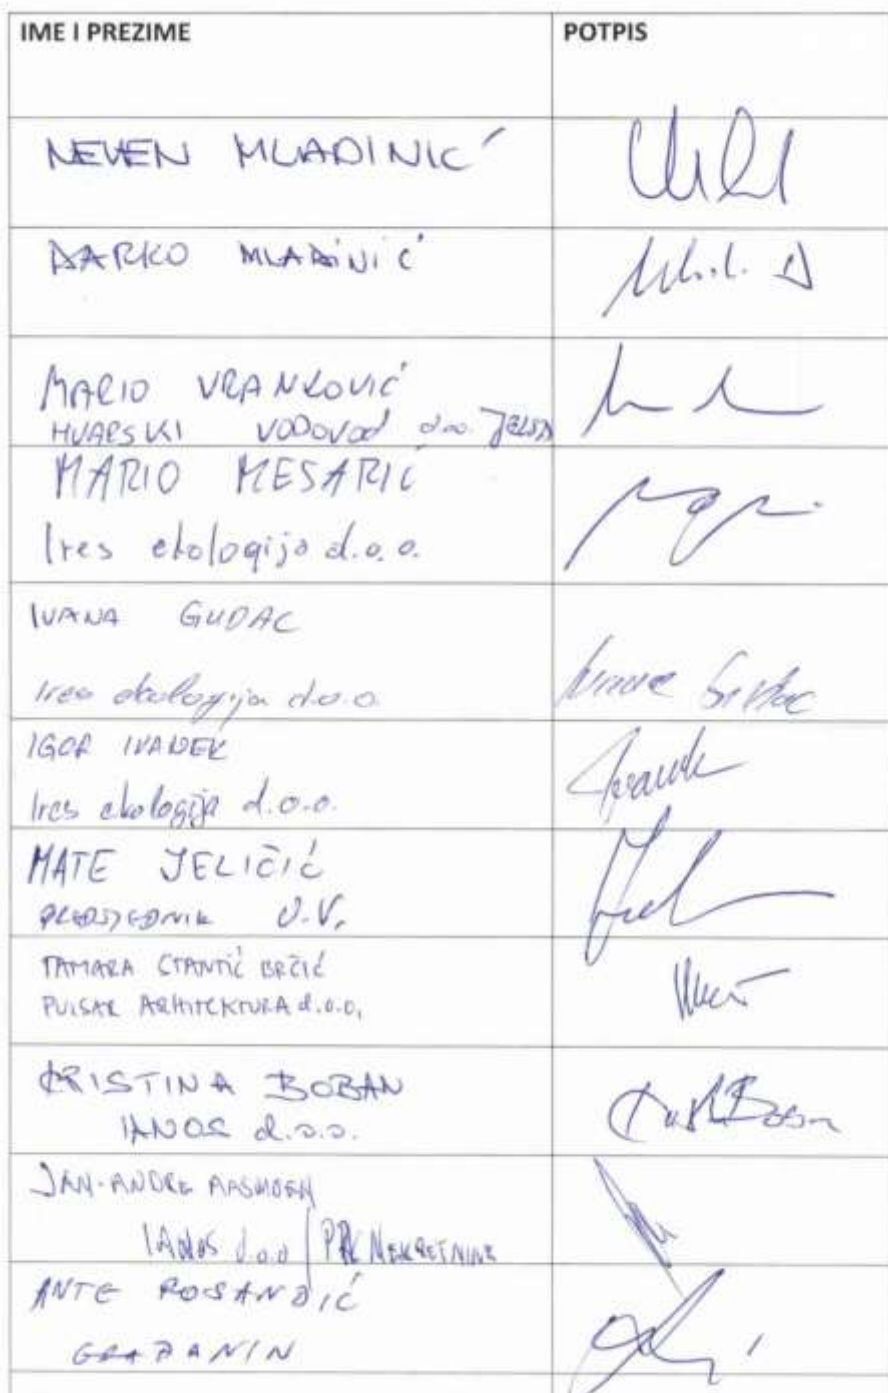 IME I PREZIME POTPIS
NEVEN MLADINIĆ
DARKO MLADINIĆ
MARIO VRANKOVIĆ
HVARSKI VODOVOD d.o.o. JELSA
MARIO MESARIĆ
Ires ekologija d.o.o.
IVANA GUDAC
Ires ekologija d.o.o. Ivana Gudac
IGOR IVANEK
Ires ekologija d.o.o. Ivanek
MATE JELIČIĆ
PREDSJEDNIK O.V.
TAMARA STANTIĆ BRČIĆ
PULSAR ARHITEKTURA d.o.o.
KRISTINA BOBAN
IANOS d.o.o.
JAN-ANDRE
IANOS d.o.o / NEKRETNINE
ANTE ROSANDIĆ
GRAĐANIN